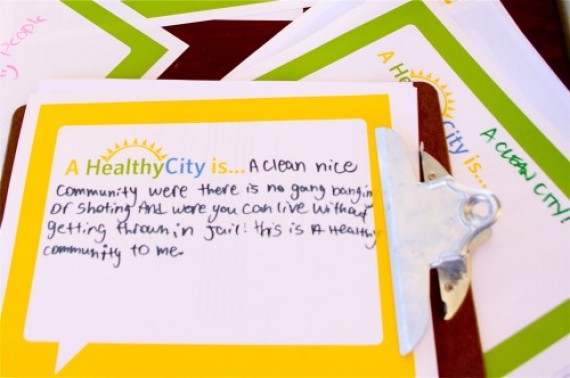 People
A HealthyCity is... A clean nice
community were there is no gang bangin
or shoting And were you can live without
getting thrown in jail! this is A Healthy
community to me.
A He
City is...
A CLEAN CITY!